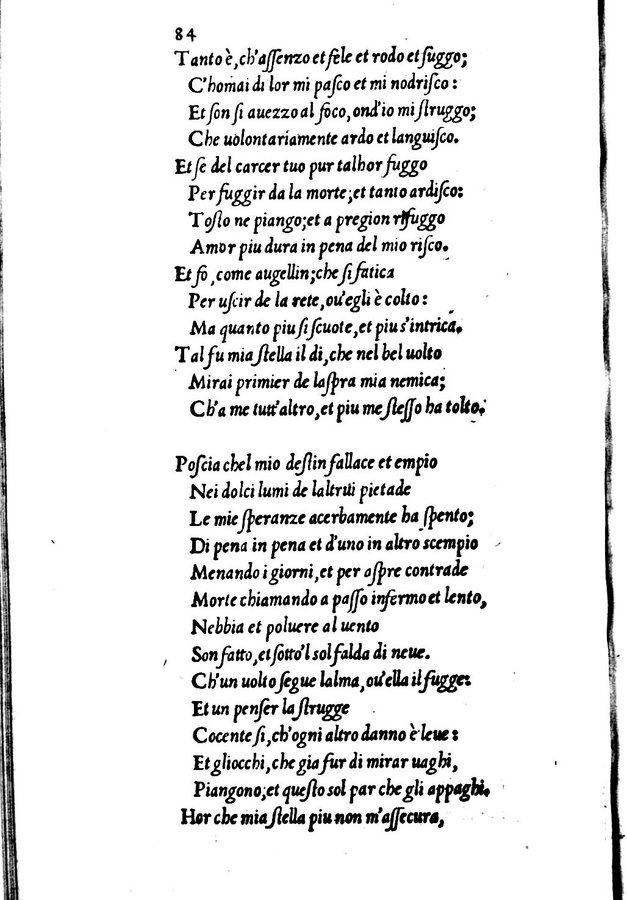 84
Tanto è, ch'aſſenzo et fele et rodo et ſuggo;
C'homai di lor mi paſco et mi nodriſco:
Et ſon ſi auezzo al foco, ond'io mi ſtruggo;
Che uolontariamente ardo et languiſco.
Et ſe del carcer tuo pur talhor fuggo
Per fuggir da la morte; et tanto ardiſco:
Toſto ne piango; et a pregion rifuggo
Amor piu dura in pena del mio riſco.
Et fo, come augellin; che ſi fatica
Per uſcir de la rete, ou'egli è colto:
Ma quanto piu ſi ſcuote, et piu s'intrica.
Tal fu mia ſtella il di, che nel bel uolto
Mirai primier de laſpra mia nemica;
Ch'a me tutt'altro, et piu me ſteſſo ha tolto.
Poſcia chel mio deſtin fallace et empio
Nei dolci lumi de laltrui pietade
Le mie ſperanze acerbamente ha ſpento;
Di pena in pena et d'uno in altro ſcempio
Menando i giorni, et per aſpre contrade
Morte chiamando a paſſo infermo et lento,
Nebbia et poluere al uento
Son fatto, et ſotto'l sol falda di neue.
Ch'un uolto ſegue lalma, ou'ella il fugge:
Et un penſer la ſtrugge
Cocente ſi, ch'ogni altro danno è leue:
Et gliocchi, che gia fur di mirar uaghi,
Piangono; et queſto sol par che gli appaghi.
Hor che mia ſtella piu non m'aſſecura,